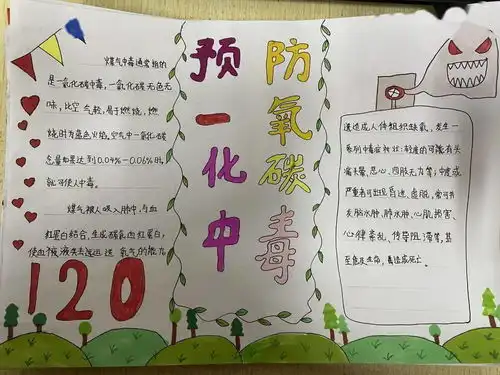 煤气中毒通常指的
是一氧化碳中毒，一氧化碳无色无
味，比空气轻，易于燃烧，燃
烧时为蓝色火焰。空气中一氧化碳
含量如果达到0.04%-0.06%时，
就可使人中毒。
煤气被人吸入肺中，与血
红蛋白结合，生成碳氧血红蛋白，
使血液失去运送氧气的能力
120
预防
一氧
化碳
中毒
造成人体组织缺氧，发生一
系列中毒症状：轻度的可能有头
痛、恶心、四肢无力等；中度或
严重者可出现昏迷、虚脱，常可并
发脑水肿、肺水肿、心肌损害、
心律紊乱、传导阻滞等，甚
至危及生命，造成死亡。